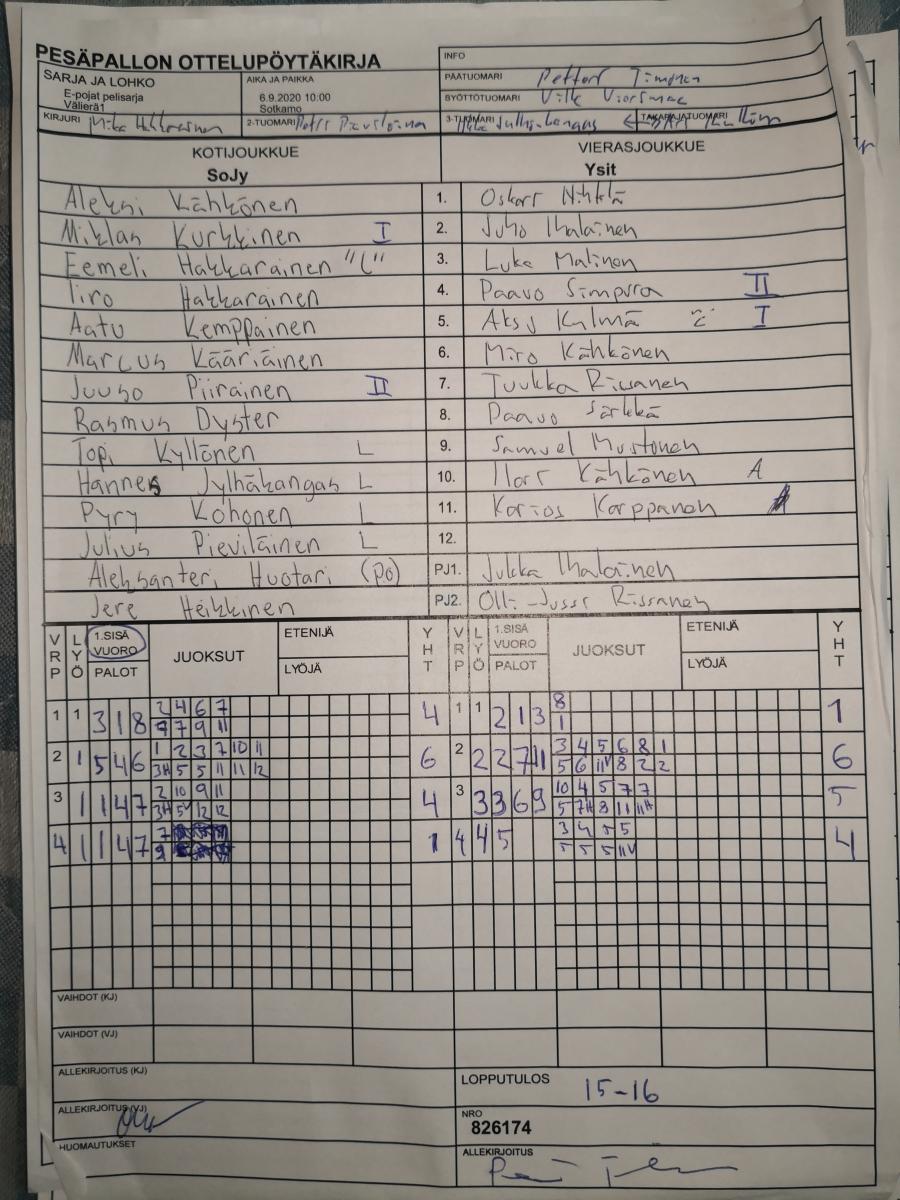 PESÄPALLON OTTELUPÖYTÄKIRJA
INFO
SARJA JA LOHKO
E-pojat pelisarja
Välierä1
AIKA JA PAIKKA
6.9.2020 10:00
Sotkamo
PÄÄTUOMARI
SYÖTTÖTUOMARI Ville
KIRJURI Mika Hakkarainen
2-TUOMARI
3-TUOMARI
TAKARAJATUOMARI
KOTIJOUKKUE VIERASJOUKKUE
SoJy Ysit
Aleksi Kähkönen 1. Oskari
Miklas Kurkkinen I 2. Juho Ihalainen
Eemeli Hakkarainen "C" 3. Luka Malinen
Iiro Hakkarainen 4. Paavo Simpura II
Aatu Kemppainen 5. Aksu Kylmä "C" I
Marcus Kääriäinen 6. Miro Kähkönen
Juuso Piirainen II 7. Tuukka Rissanen
Rasmus Dyster 8. Paavo Särkkä
Topi Kyllönen L 9. Samuel Mustonen
Hannes Jylhäkangas L 10. Ilari Kähkönen A
Pyry Kohonen L 11. Karppanen
Julius Pieviläinen L 12.
Aleksanteri Huotari (PO) PJ1. Jukka Ihalainen
Jere Heikkinen PJ2. Olli-Jussi Rissanen
VRP LYÖ 1.SISÄ VUORO PALOT JUOKSUT ETENIJÄ LYÖJÄ YHT VRP LYÖ 1.SISÄ VUORO PALOT JUOKSUT ETENIJÄ LYÖJÄ YHT
1 1 3 1 8 2 4 6 7 4 1 1 2 1 3 8 1
7 9 11 1
2 1 5 4 6 1 2 3 7 10 11 6 2 2 2 7 11 3 4 5 6 8 1 6
3H 5 5 11 11 12 5 6 11V 8 2 2
3 1 1 4 7 2 10 9 11 4 3 3 3 6 9 10 4 5 7 7 5
3H 5V 12 12 5 7H 8 11 11H
4 1 1 4 7 7 1 4 4 5 3 4 5 5 4
9 5 5 5 11V
VAIHDOT (KJ)
VAIHDOT (VJ)
ALLEKIRJOITUS (KJ)
LOPPUTULOS 15-16
ALLEKIRJOITUS (VJ)
NRO
826174
HUOMAUTUKSET
ALLEKIRJOITUS